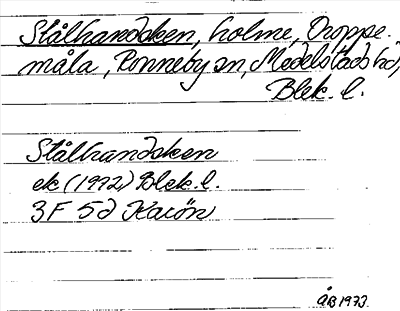 Stålhandsken, holme, Droppe-
måla, Ronneby sn, Medelstads hd,
Blek. l.
Stålhandsken
ek (1972) Blek. l.
3F 5d Karön
ÅB 1973